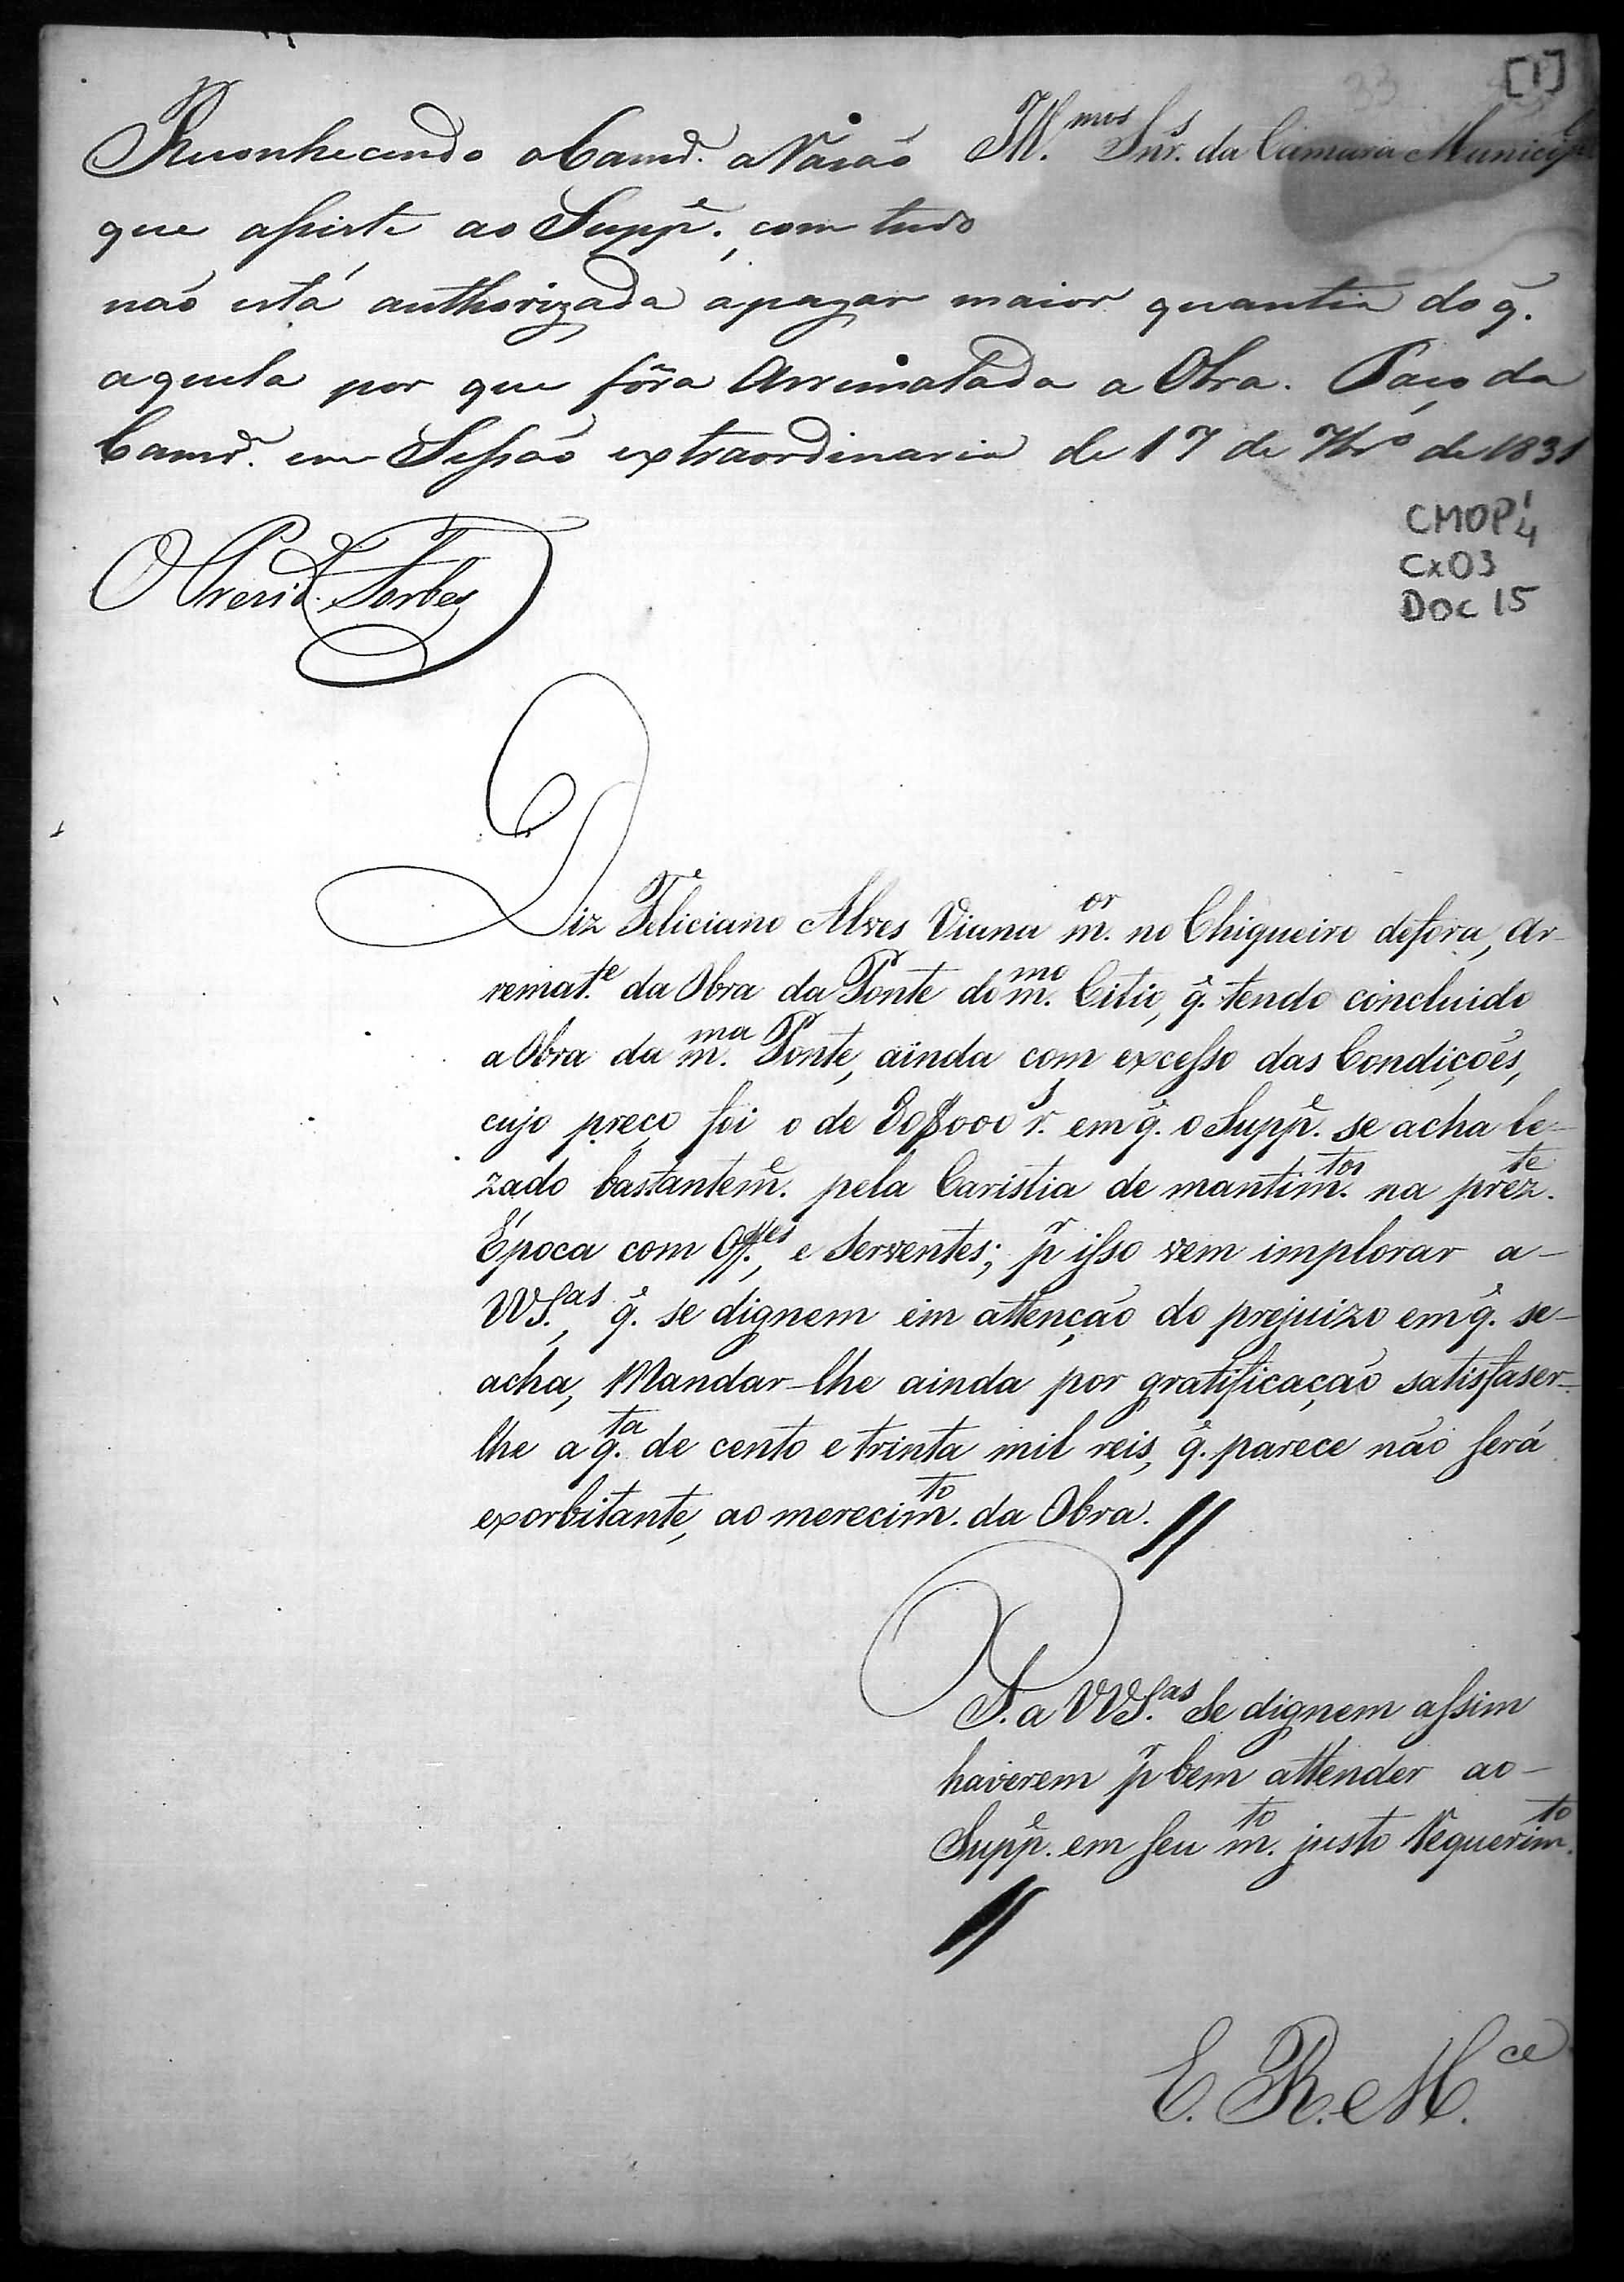 [1]
Ill.mos Snr.s da Camara Municip.l
Reconhecendo a Camr.ª a Razaõ
que assiste ao Supp.e, com tudo
naõ está authorizada a pagar maior quantia do q.
aquela por que fôra Arrematada a Obra. Paço da
Camr.ª em Sessaõ extraordinaria de 17 de 7br.o de 1831
CMOP 1/4
Cx03
DOC 15
O Presid.e Torbes
Diz Feliciano Alves Viana m.or no Chiqueiro defora, Ar-
remat.te da Obra da Ponte do m.mo Citio, q̃. tendo concluido
a Obra da m.ma Ponte, ainda com excesso das Condiçoẽs,
cujo preço foi o de 80$000 r.s em q̃. o Supp.e se acha le-
zado bastantem.e pela Caristia de mantim.tos na prez.te
Época com Off.es, e Serventes; p.r isso vem implorar a-
VVS.as, q̃. se dignem em attençaõ do prejuizo em q̃. se-
acha, Mandar-lhe ainda por gratificaçaõ satisfaser-
lhe a q.ta de cento e trinta mil reis, q̃. parece naõ será
exorbitante, ao merecim.to da Obra. //
P. a VVS.as Se dignem assim
haverem p.r bem attender ao-
Supp.e em seu m.to justo Requerim.to
//
E. R. M.ce